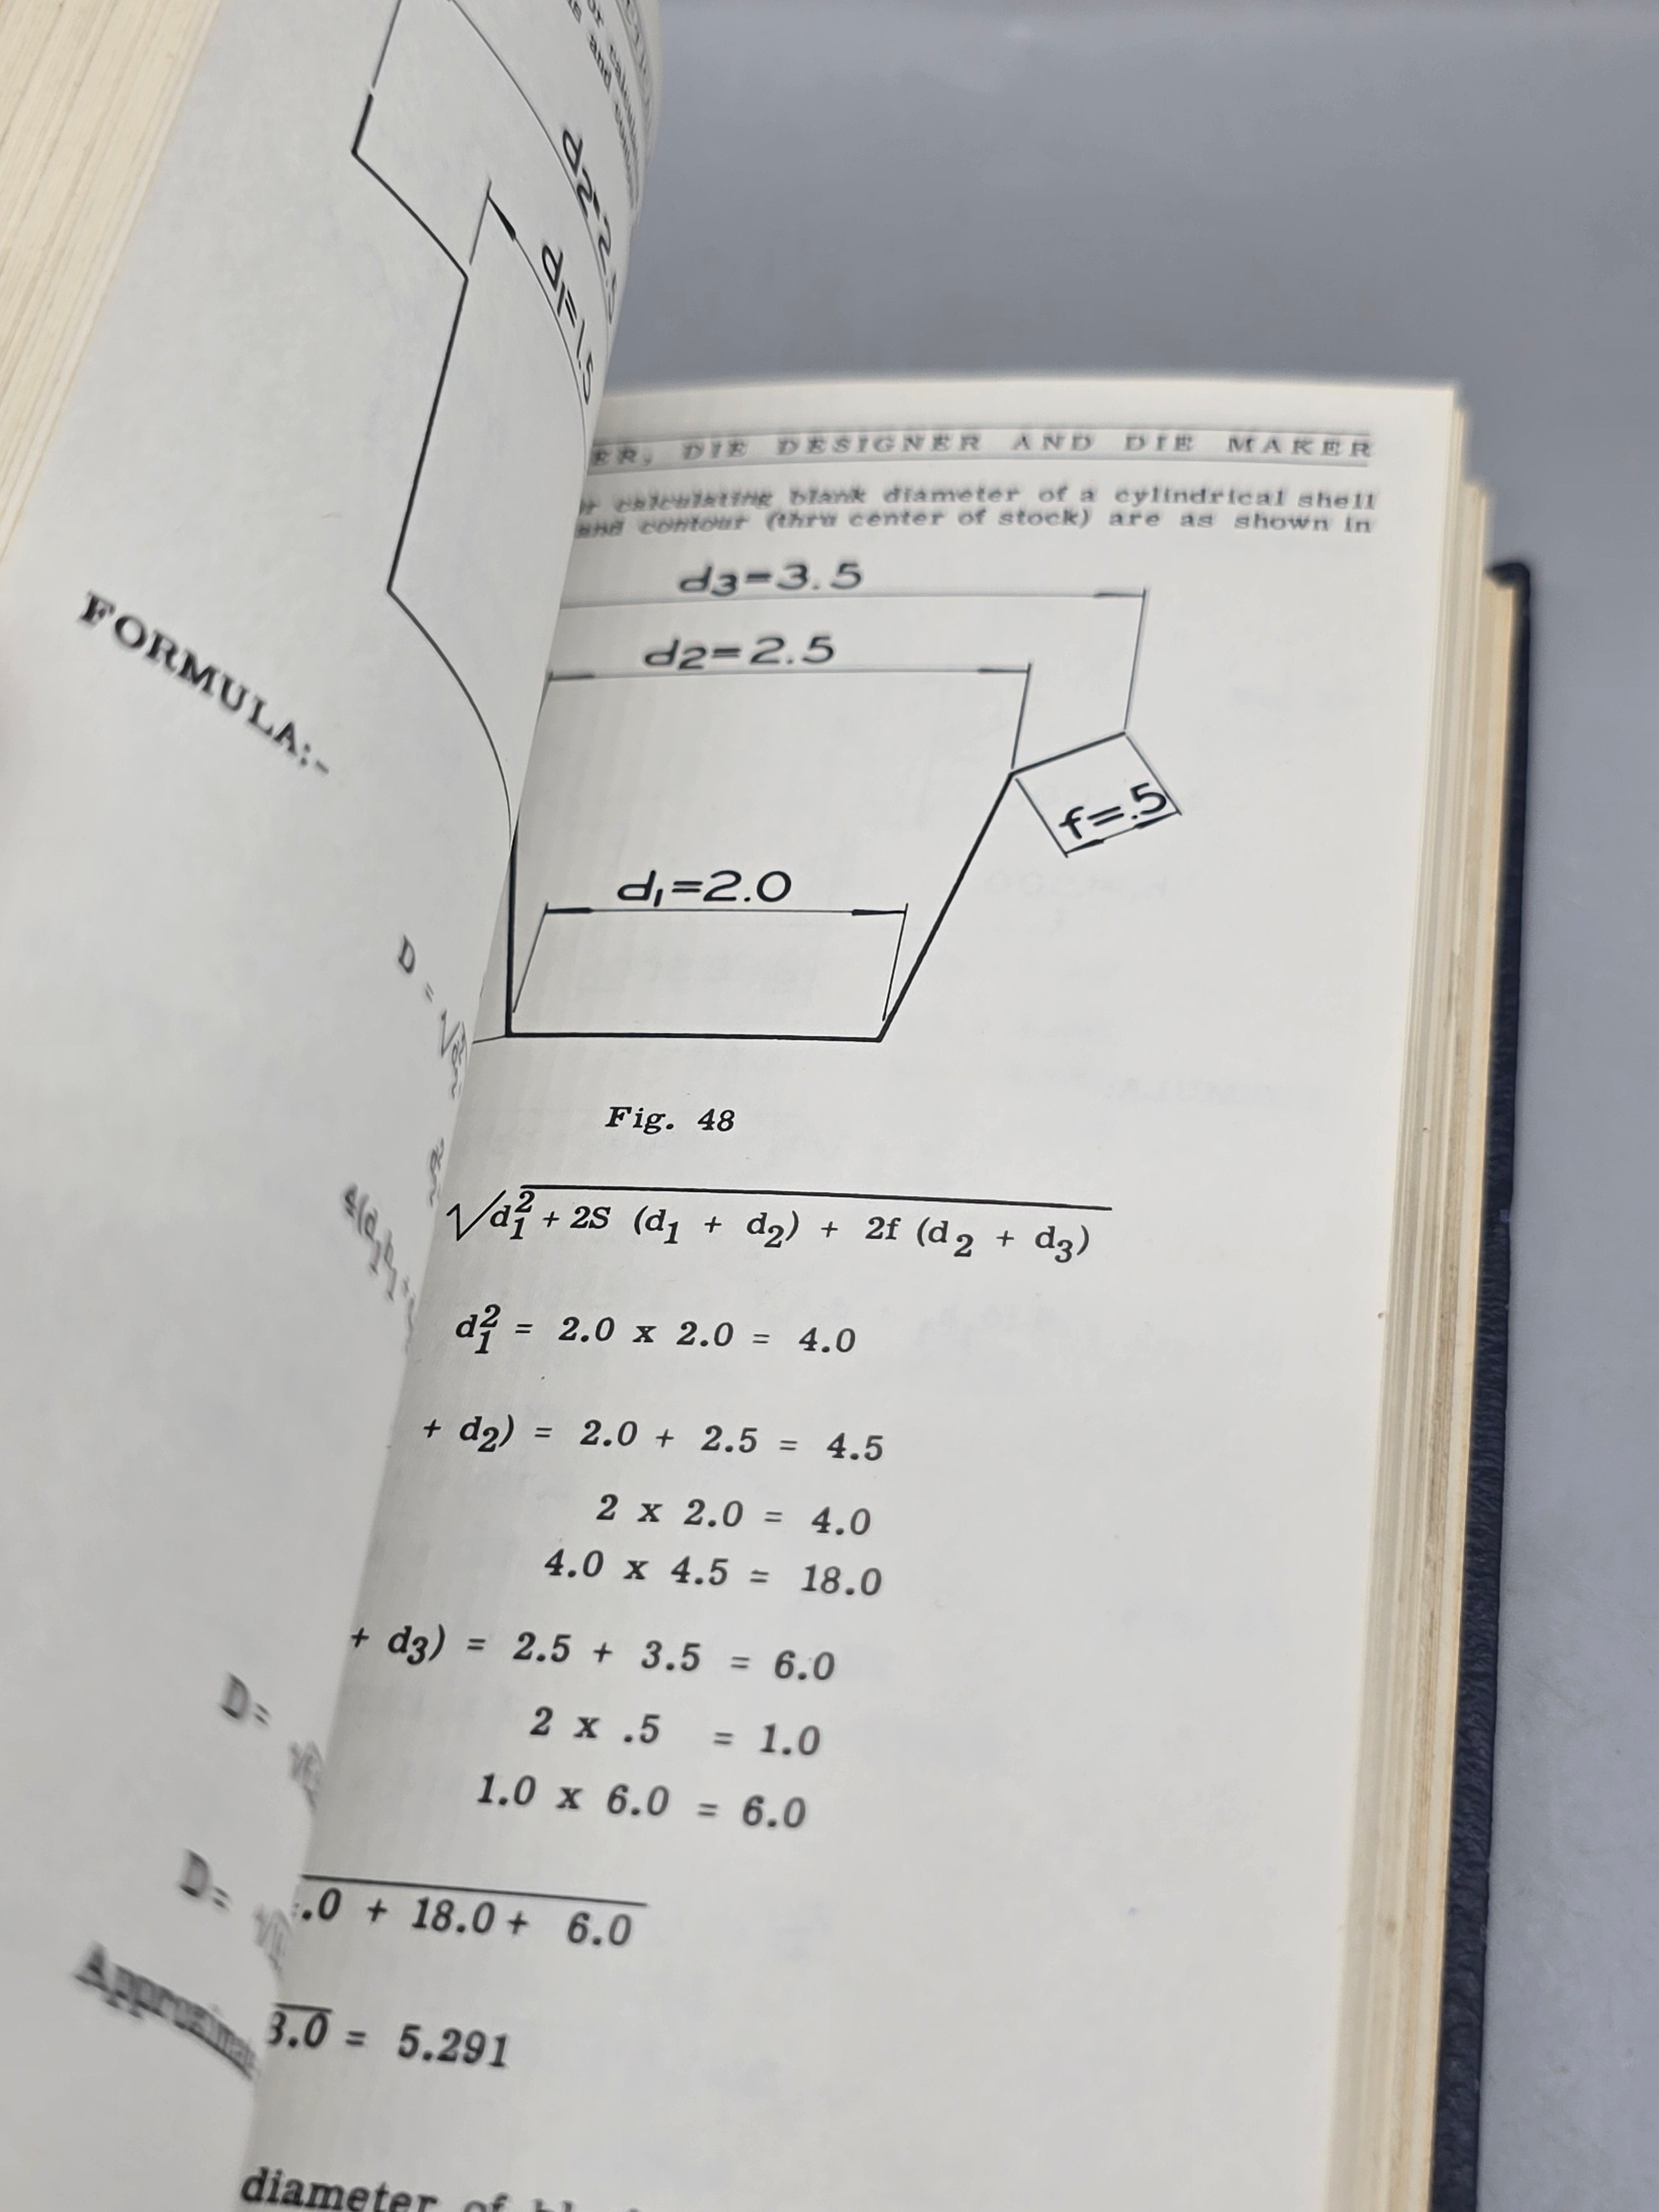 d2=2.5
d1=1.5
FORMULA:-
D =
D=
D=
ER, DIE DESIGNER AND DIE MAKER
calculating blank diameter of a cylindrical shell
and contour (thru center of stock) are as shown in
d3=3.5
d2=2.5
f=.5
d1=2.0
Fig. 48
√d₁² + 2S (d₁ + d₂) + 2f (d₂ + d₃)
d₁² = 2.0 x 2.0 = 4.0
+ d₂) = 2.0 + 2.5 = 4.5
2 x 2.0 = 4.0
4.0 x 4.5 = 18.0
+ d₃) = 2.5 + 3.5 = 6.0
2 x .5 = 1.0
1.0 x 6.0 = 6.0
.0 + 18.0 + 6.0
8.0 = 5.291
diameter of